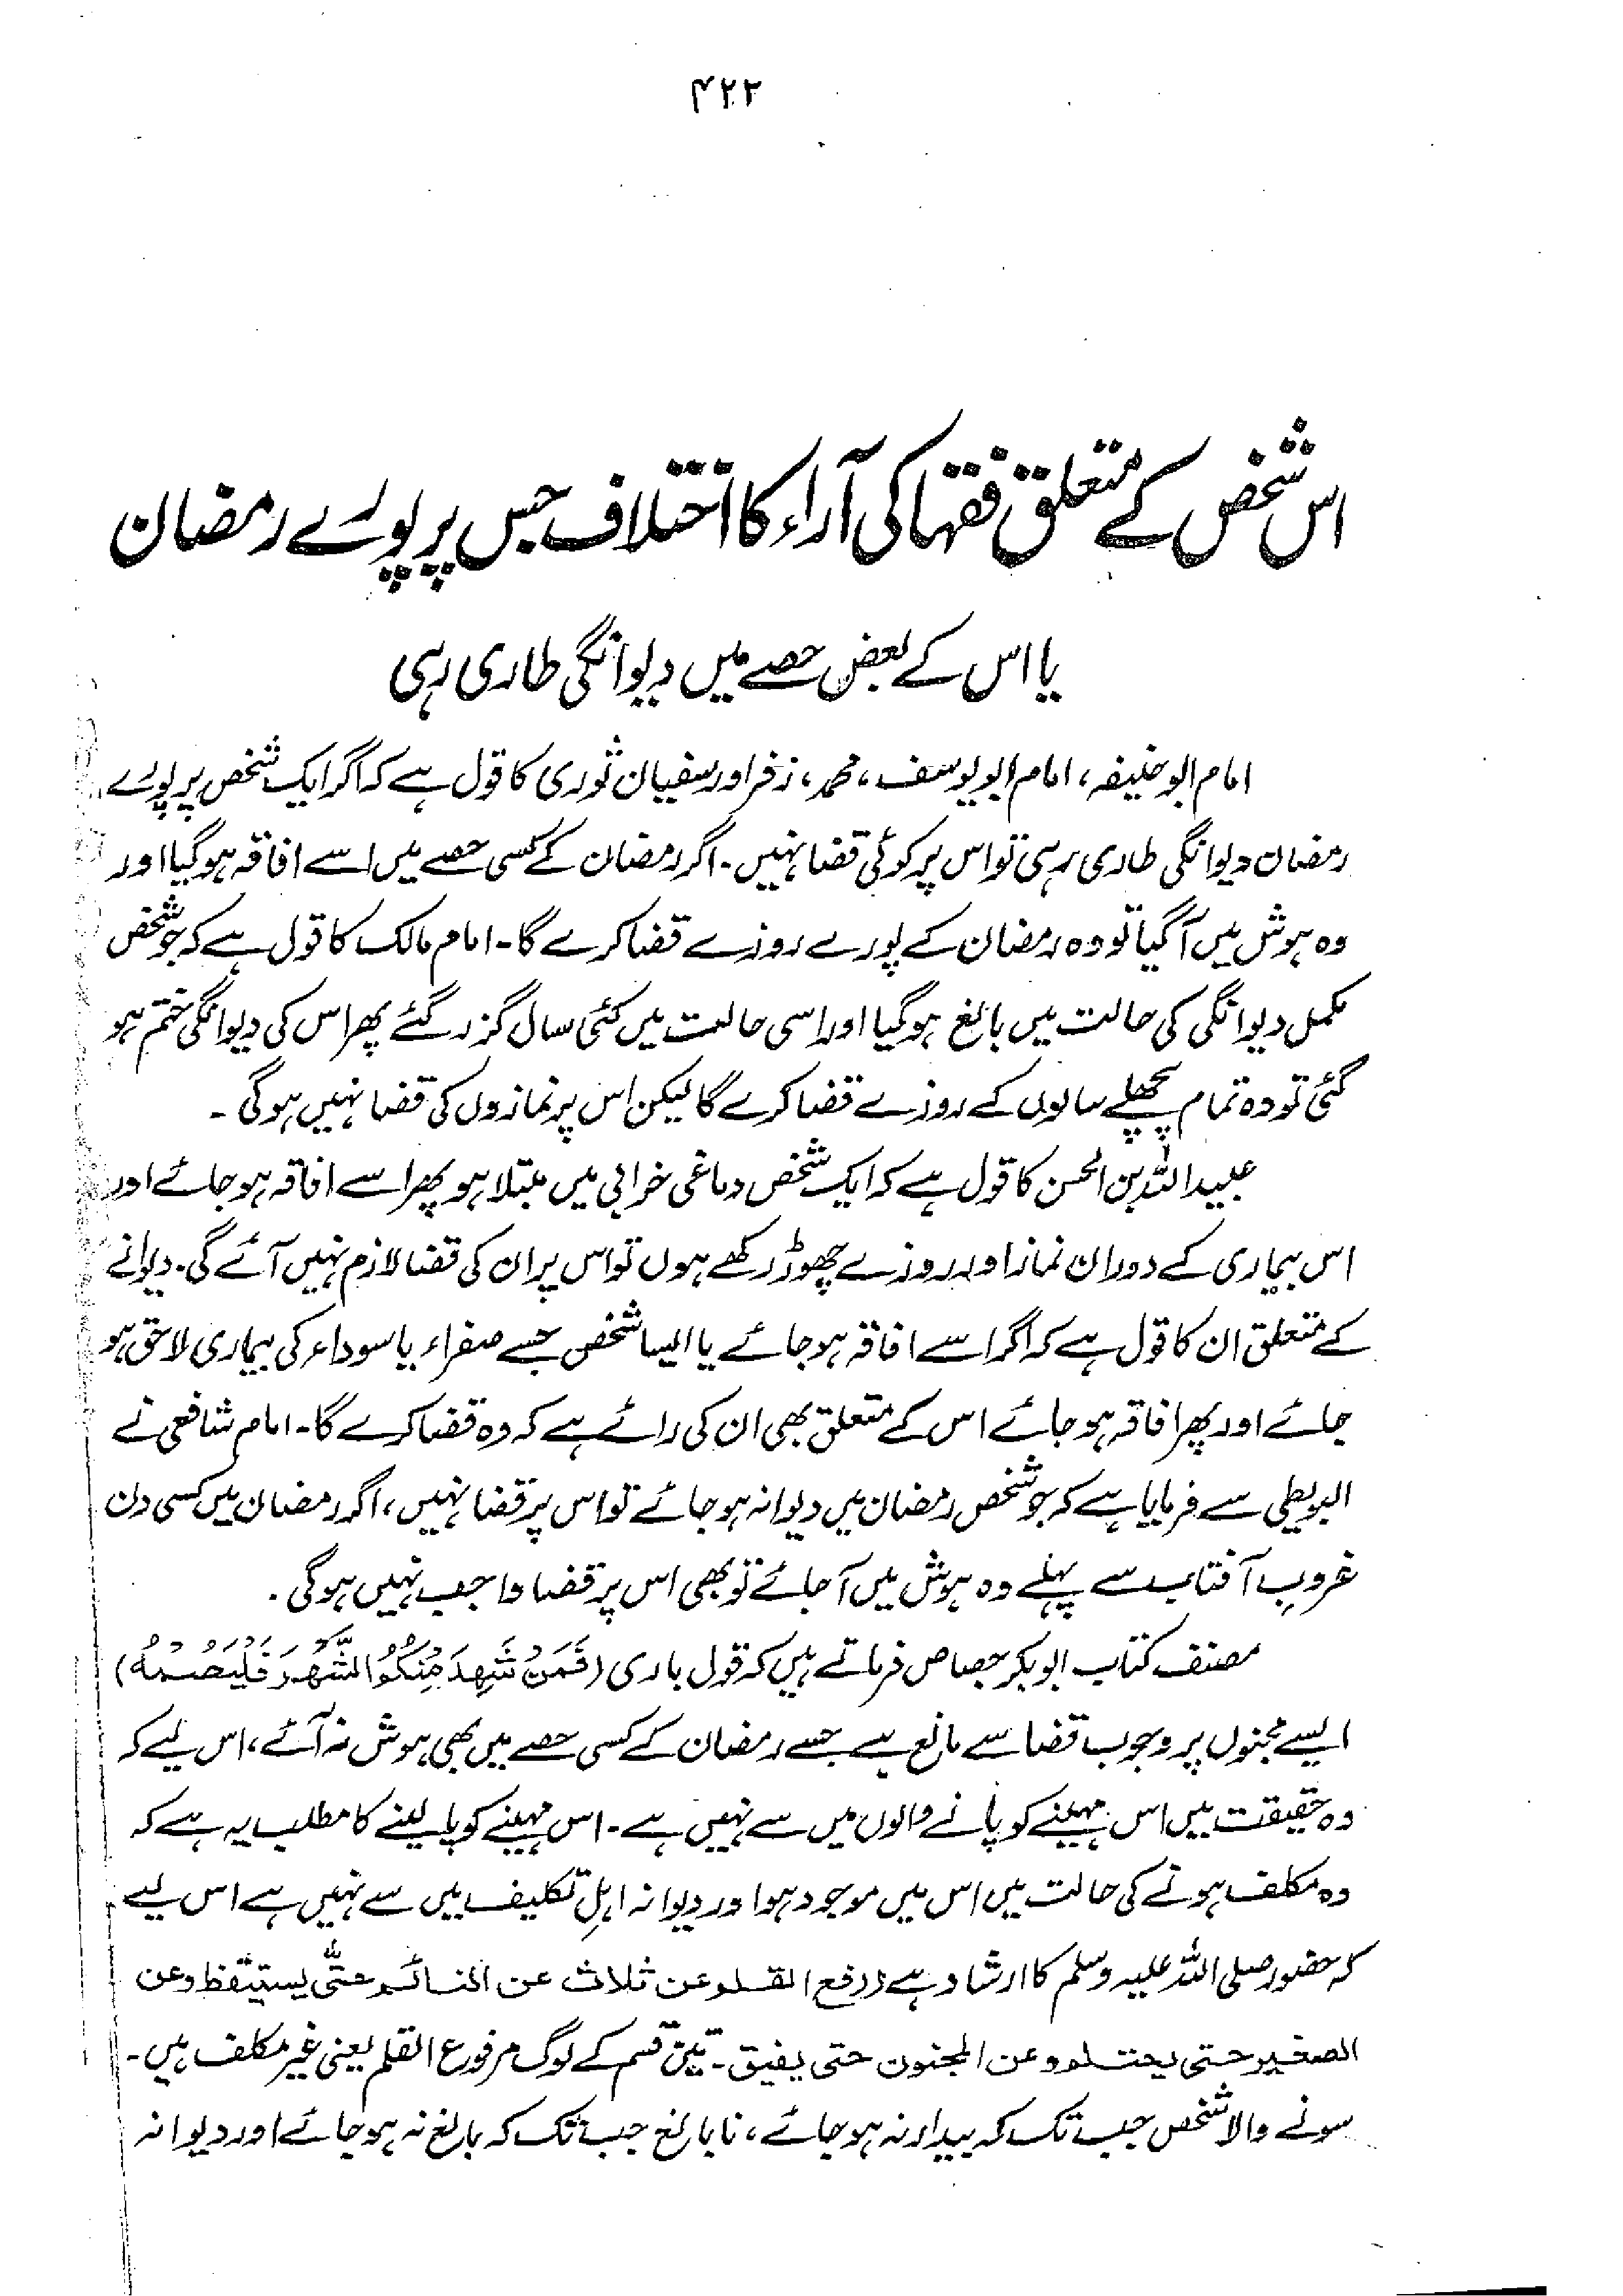 ۴۲۲
اس شخص کے متعلق فقہا کی آراء کا اختلاف جس پر پورے رمضان
یا اس کے بعض حصے میں دیوانگی طاری رہی
امام ابو حنیفہ، امام ابو یوسف، محمد، زفر اور سفیان ثوری کا قول ہے کہ اگر ایک شخص پر پورے
رمضان دیوانگی طاری رہی تو اس پر کوئی قضا نہیں۔ اگر رمضان کے کسی حصے میں اسے افاقہ ہو گیا اور
وہ ہوش میں آگیا تو وہ رمضان کے پورے روزے قضا کرے گا۔ امام مالک کا قول ہے کہ جو شخص
مکمل دیوانگی کی حالت میں بالغ ہو گیا اور اسی حالت میں کئی سال گزر گئے پھر اس کی دیوانگی ختم ہو
گئی تو وہ تمام پچھلے سالوں کے روزے قضا کرے گا لیکن اس پر نمازوں کی قضا نہیں ہوگی۔
عبید اللہ بن الحسن کا قول ہے کہ ایک شخص دماغی خرابی میں مبتلا ہو پھر اسے افاقہ ہو جائے اور
اس بیماری کے دوران نماز اور روزے چھوڑ رکھے ہوں تو اس پر ان کی قضا لازم نہیں آئے گی۔ دیوانے
کے متعلق ان کا قول ہے کہ اگر اسے افاقہ ہو جائے یا ایسا شخص جسے صفراء یا سوداء کی بیماری لاحق ہو
جائے اور پھر افاقہ ہو جائے اس کے متعلق بھی ان کی رائے ہے کہ وہ قضا کرے گا۔ امام شافعی نے
البویطی سے فرمایا ہے کہ جو شخص رمضان میں دیوانہ ہو جائے تو اس پر قضا نہیں، اگر رمضان میں کسی دن
غروبِ آفتاب سے پہلے وہ ہوش میں آ جائے تو بھی اس پر قضا واجب نہیں ہوگی۔
مصنف کتاب ابو بکر جصاص فرماتے ہیں کہ قول باری (فَمَنْ شَهِدَ مِنْكُمُ الشَّهْرَ فَلْيَصُمْهُ)
ایسے مجنوں پر وجوب قضا سے مانع ہے جسے رمضان کے کسی حصے میں بھی ہوش نہ آئے، اس لیے کہ
وہ حقیقت میں اس مہینے کو پانے والوں میں سے نہیں ہے۔ اس مہینے کو پا لینے کا مطلب یہ ہے کہ
وہ مکلف ہونے کی حالت میں اس میں موجود ہو اور دیوانہ اہلِ تکلیف میں سے نہیں ہے اس لیے
کہ حضور صلی اللہ علیہ وسلم کا ارشاد ہے (رفع القلم عن ثلاث عن النائم حتّٰی یستیقظ وعن
الصغیر حتی یحتلم وعن المجنون حتی یفیق۔ تین قسم کے لوگ مرفوع القلم یعنی غیر مکلف ہیں۔
سونے والا شخص جب تک کہ بیدار نہ ہو جائے، نابالغ جب تک کہ بالغ نہ ہو جائے اور دیوانہ